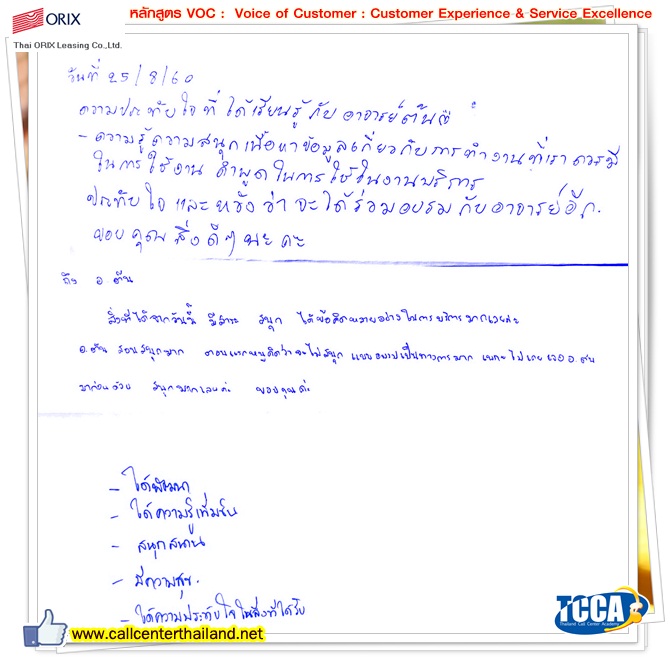 ORIX
Thai ORIX Leasing Co.,Ltd.
หลักสูตร VOC : Voice of Customer : Customer Experience & Service Excellence
วันที่ 25/8/60
ความประทับใจที่ได้เรียนรู้กับอาจารย์ต้น
- ความรู้ความสนุกเนื้อหาข้อมูลเกี่ยวกับการทำงานที่เราควรมี
ในการใช้งาน คำพูดในการใช้ในงานบริการ
ประทับใจและหวังว่าจะได้ร่วมอบรมกับอาจารย์อีก.
ขอบคุณสิ่งดีๆนะคะ
ถึง อ.ต้น
สิ่งที่ได้จากวันนี้ มีสาระ สนุก ได้ข้อคิดหลายอย่างในการบริการมากเลยค่ะ
อ.ต้น สอนสนุกมาก ตอนแรกหนูคิดว่าจะไม่สนุก แบบอบรมเป็นทางการมาก เพราะไม่เคยเจอ อ.ต้น
มาก่อนด้วย สนุกมากเลยค่ะ ขอบคุณค่ะ
- ได้พัฒนา
- ได้ความรู้เพิ่มขึ้น
- สนุกสนาน
- มีความสุข.
- ได้ความประทับใจในสิ่งที่ได้รับ
www.callcenterthailand.net
TCCA
Thailand Call Center Academy